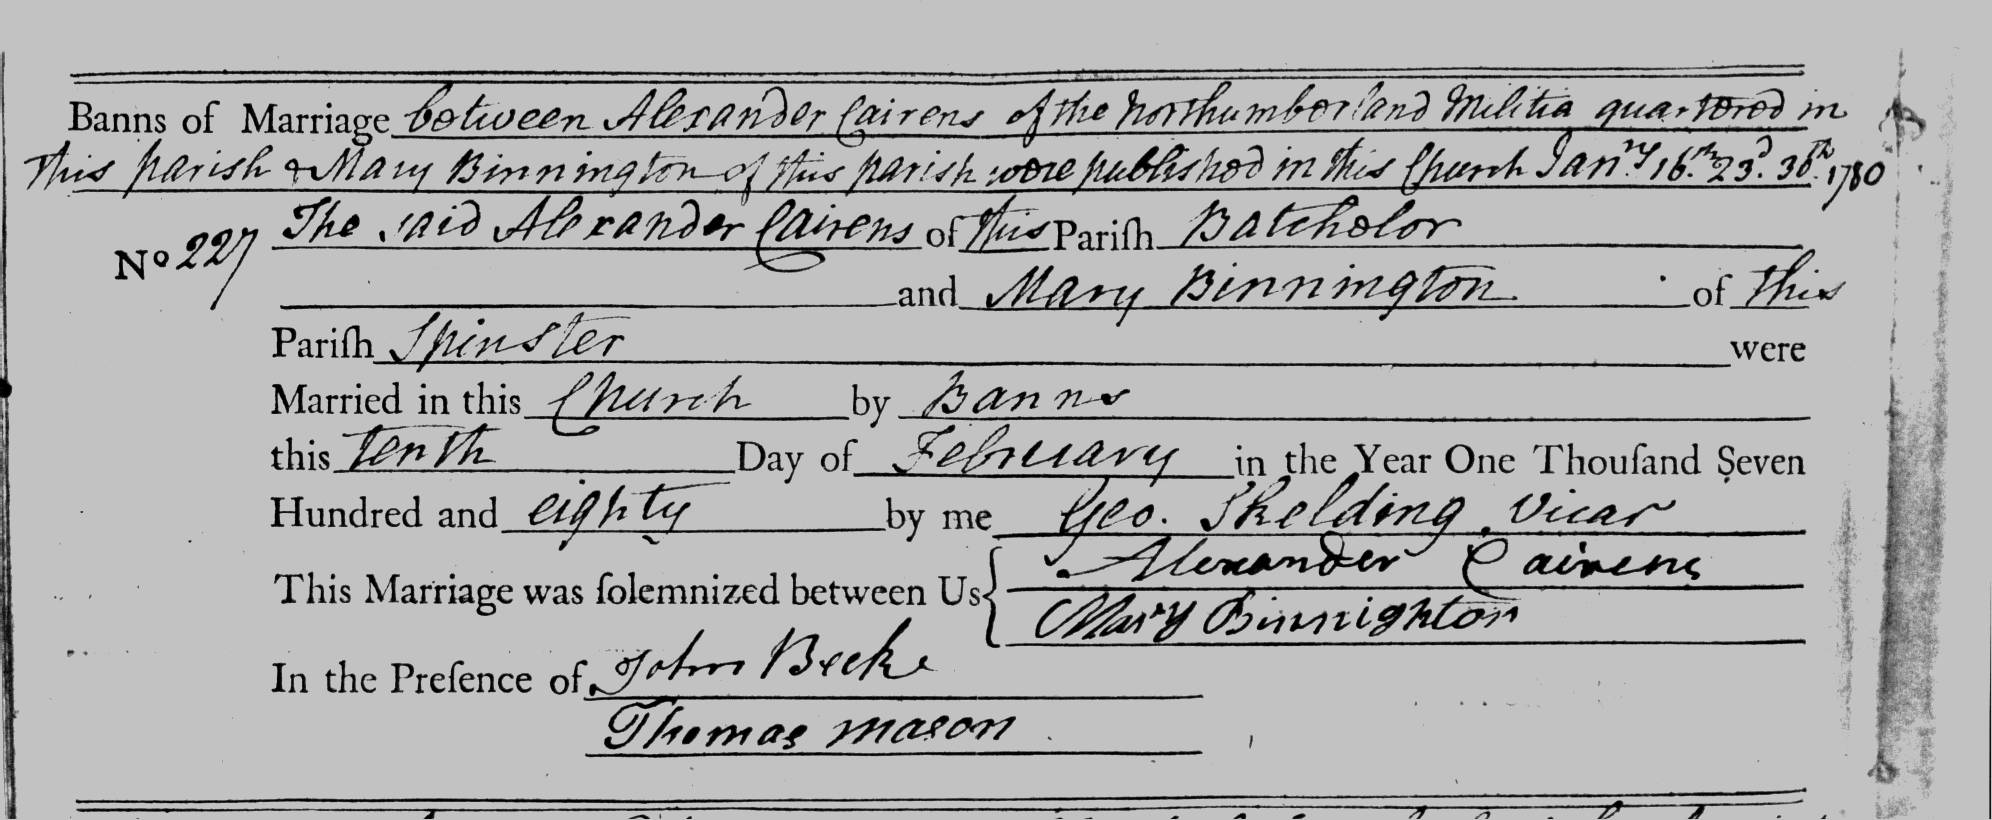 Banns of Marriage between Alexander Cairens of the Northumberland Militia quartered in
this parish & Mary Binnington of this parish were published in this Church Janry 16th 23d 30th 1780
No 227 The said Alexander Cairens of this Pariſh Batchelor
and Mary Binnington of this
Pariſh Spinster were
Married in this Church by Banns
this tenth Day of February in the Year One Thouſand Seven
Hundred and eighty by me Geo. Skelding Vicar
This Marriage was ſolemnized between Us { Alexander Cairens
Mary Binnighton
In the Preſence of John Beck
Thomas mason